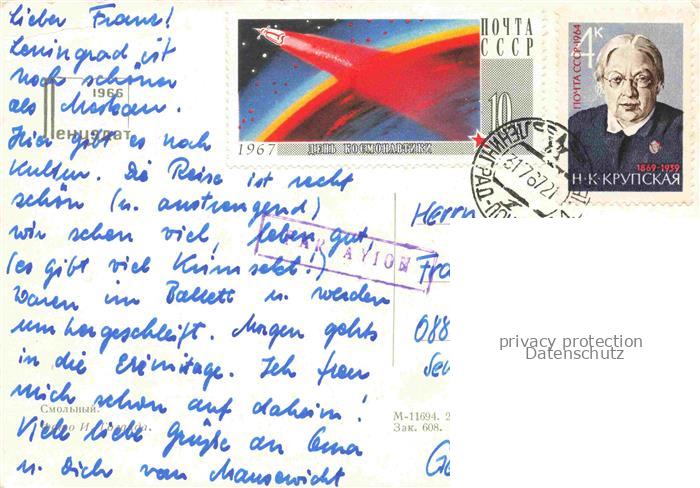 Lieber Franz!
Leningrad ist
noch schöner
als Moskau.
Hier gibt es noch
Kultur. Die Reise ist recht
schön (u. anstrengend)
wir sehen viel, leben gut,
(es gibt viel Krimsekt!)
waren im Ballett u. werden
umhergeschleift. Morgen gehts
in die Eremitage. Ich freu
mich schon auf daheim!
Viele liebe Grüße an Oma
u. Dich vom Mausewicht
1966
Лениздат
ПОЧТА
СССР
10
1967 ДЕНЬ КОСМОНАВТИКИ
4к
ПОЧТА СССР·1964
1869-1939
Н·К·КРУПСКАЯ
ЛЕНИНГРАД
3176721
PAR AVION
Herrn
Fra
088
Смольный.
Фото И.
М-11694. 2
Зак. 608.
privacy protection
Datenschutz